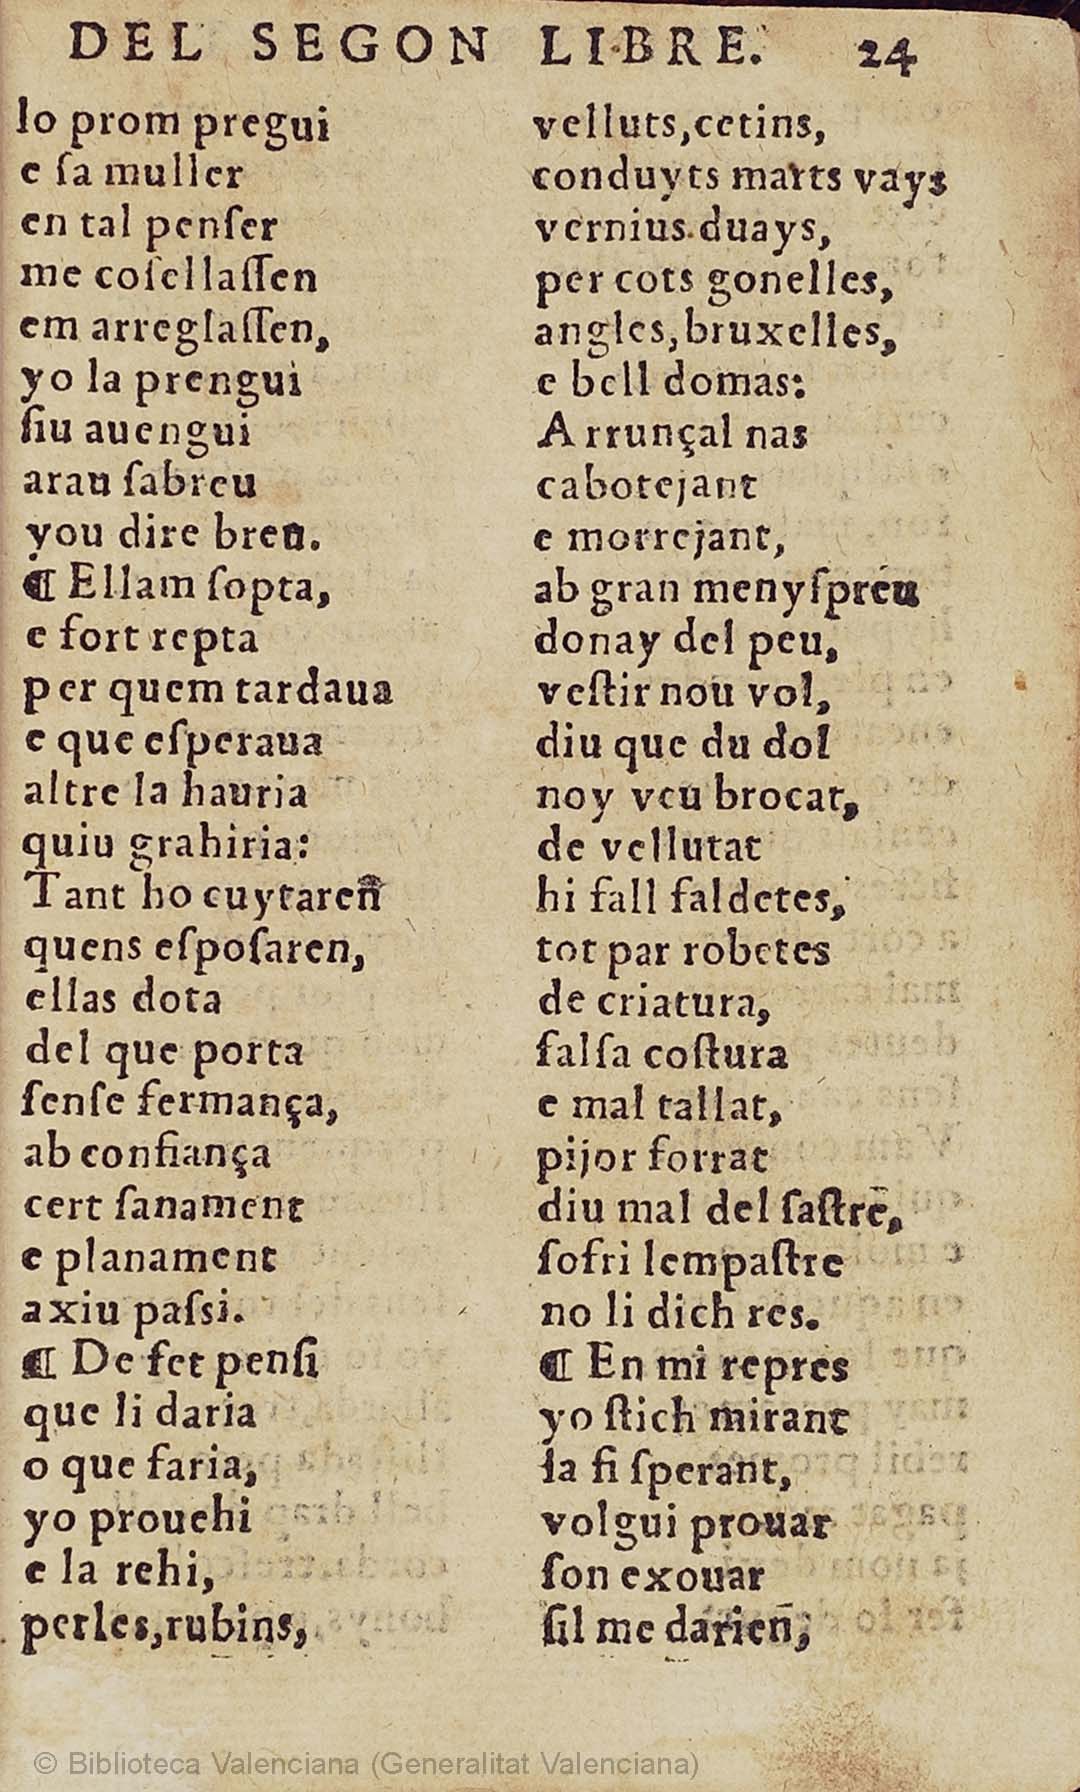 DEL SEGON LIBRE. 24
lo prom pregui
e ſa muller
en tal penſer
me coſellaſſen
em arreglaſſen,
yo la prengui
ſiu auengui
arau ſabreu
you dire breu.
¶ Ellam ſopta,
e fort repta
per quem tardaua
e que eſperaua
altre la hauria
quiu grahiria:
Tant ho cuytareñ
quens eſpoſaren,
ellas dota
del que porta
ſenſe fermança,
ab confiança
cert ſanament
e planament
axiu paſsi.
¶ De fet penſi
que li daria
o que faria,
yo prouehi
e la rehi,
perles,rubins,
velluts,cetins,
conduyts marts vays
vernius duays,
per cots gonelles,
angles,bruxelles,
e bell domas:
Arrunçal nas
cabotejant
e morrejant,
ab gran menyſpreu
donay del peu,
veſtir nou vol,
diu que du dol
noy veu brocat,
de vellutat
hi fall faldetes,
tot par robetes
de criatura,
falſa coſtura
e mal tallat,
pijor forrat
diu mal del ſaſtre,
ſofri lempaſtre
no li dich res.
¶ En mi repres
yo ſtich mirant
la fi ſperant,
volgui prouar
ſon exouar
ſil me darien,
© Biblioteca Valenciana (Generalitat Valenciana)